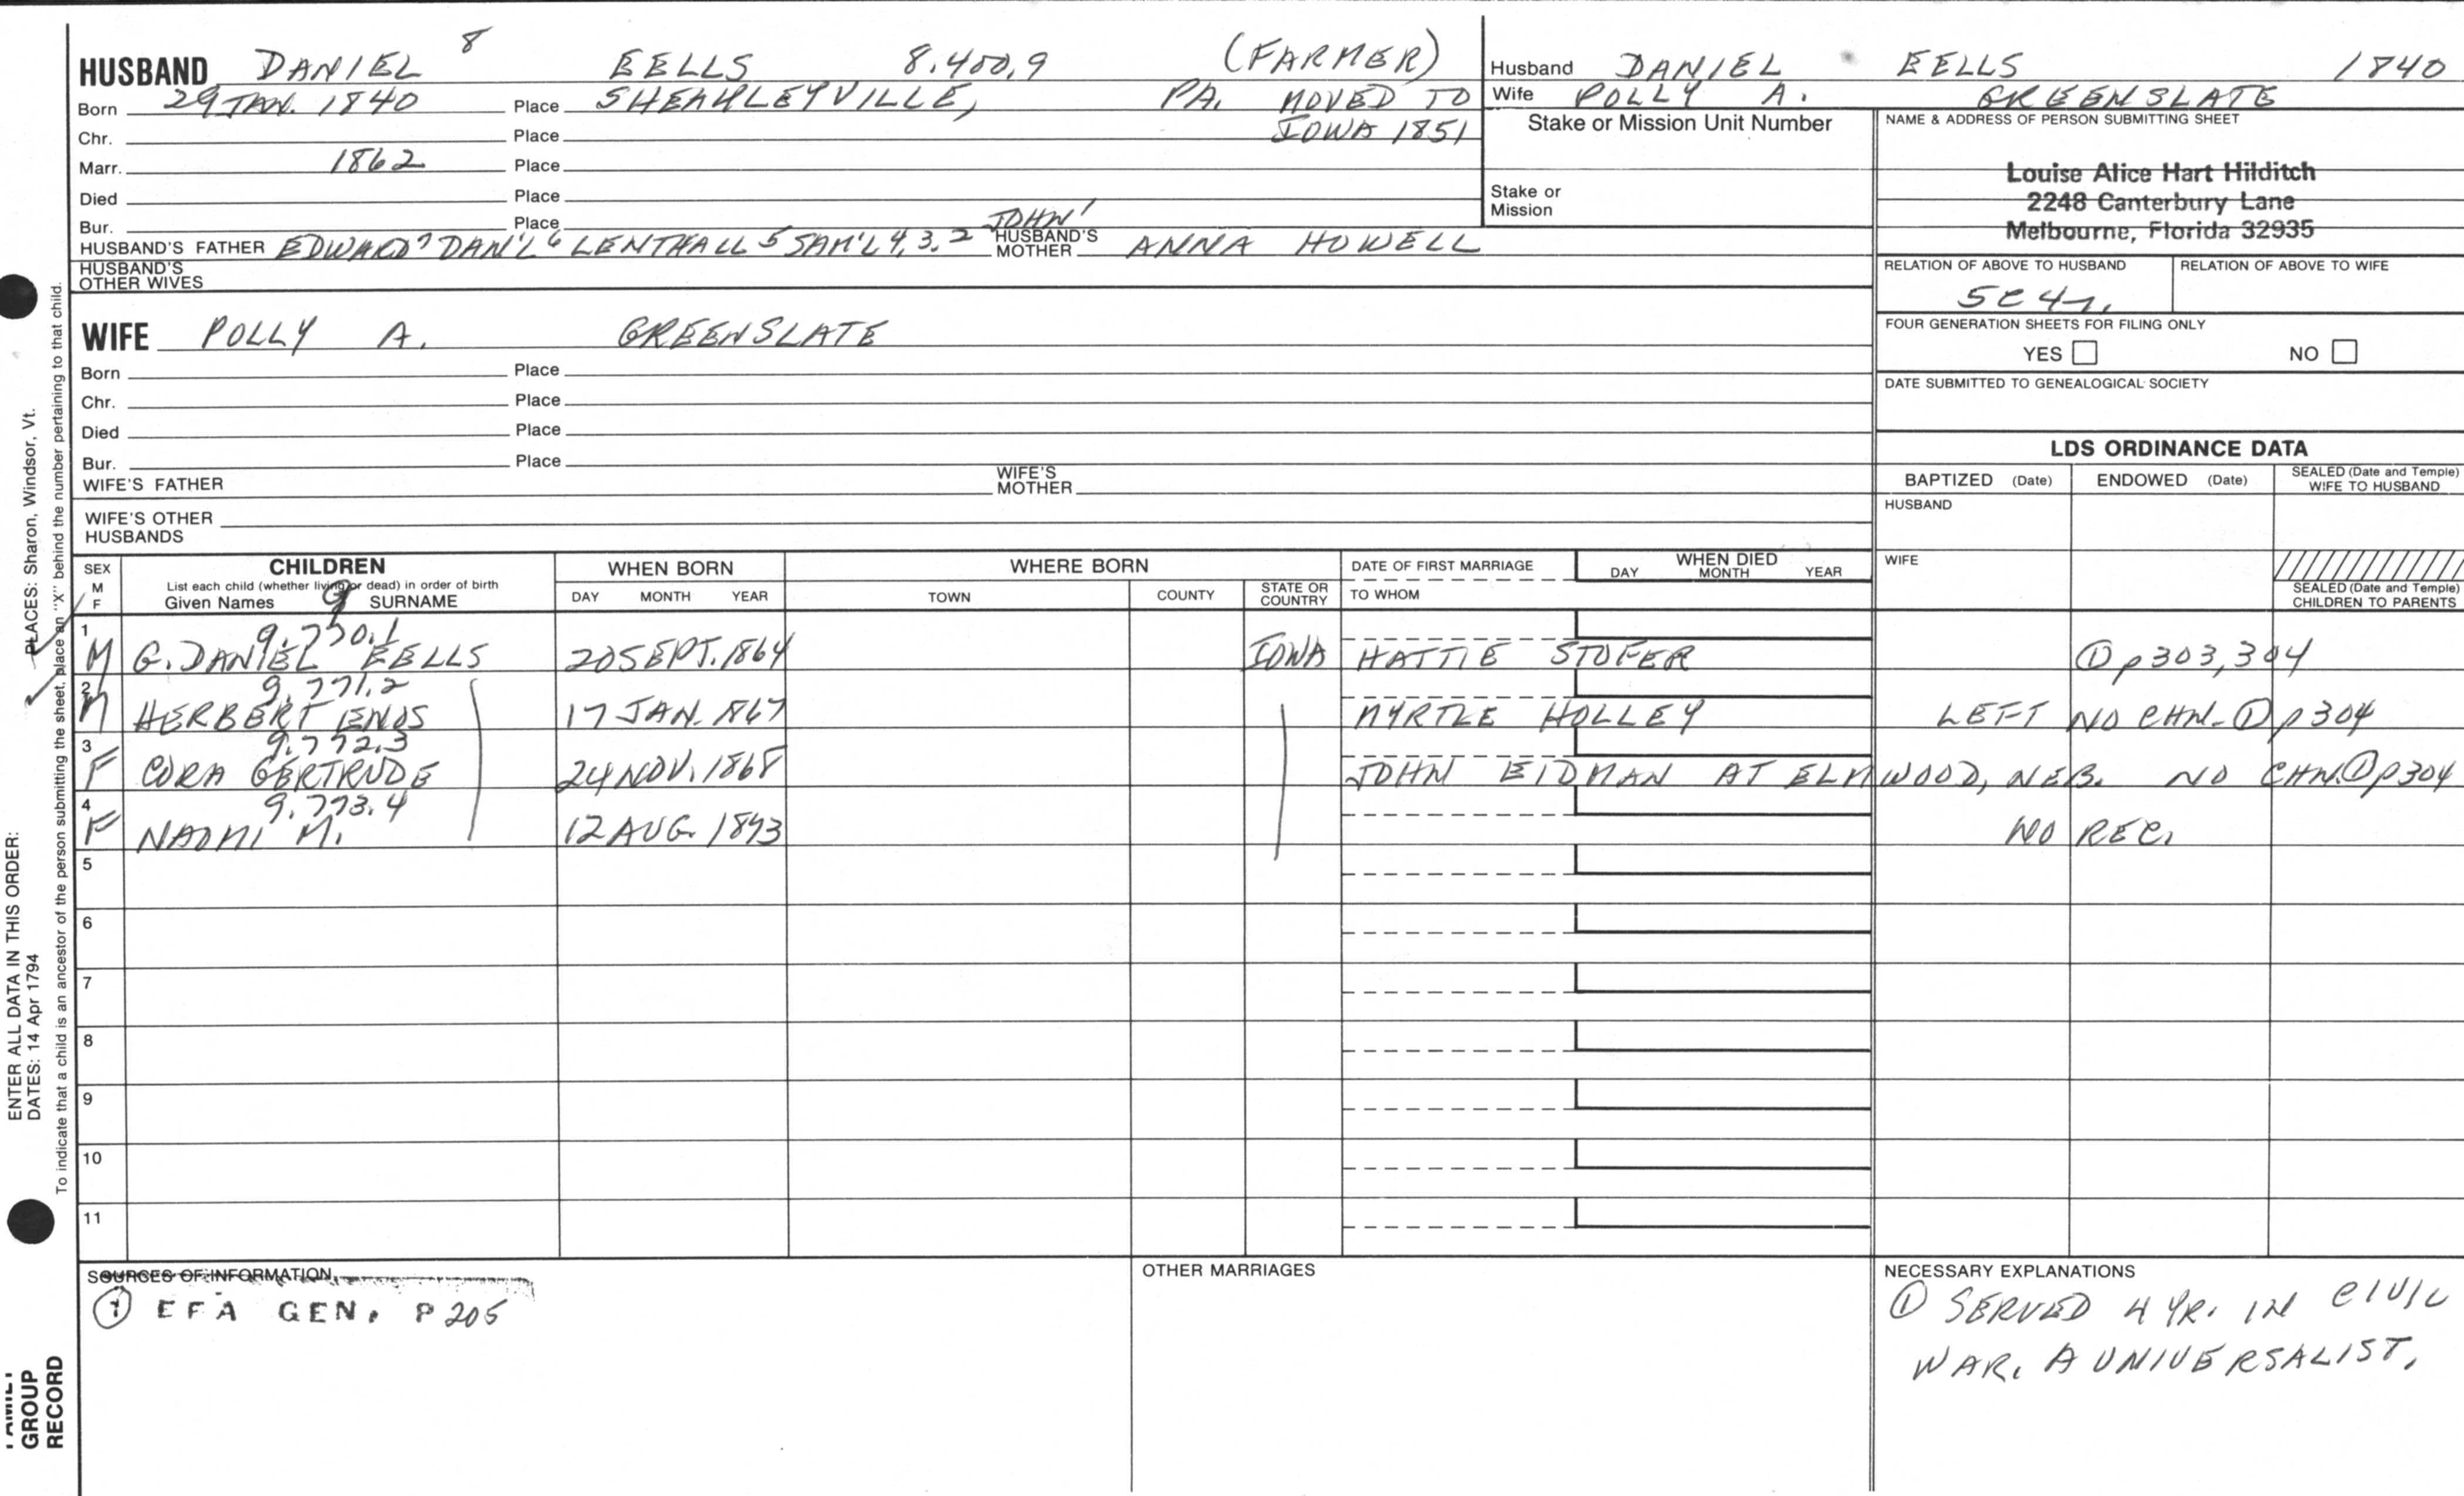 HUSBAND DANIEL 8 EELLS 8.400.9 (FARMER)
Born 29 JAN. 1840 Place SHEAKLEYVILLE, PA. MOVED TO
Chr. Place IOWA 1851
Marr. 1862 Place
Died Place
Bur. Place
HUSBAND'S FATHER EDWARD 7 DAN'L 6 LENTHALL 5 SAM'L 4, 3, 2 JOHN 1 HUSBAND'S MOTHER ANNA HOWELL
HUSBAND'S OTHER WIVES
WIFE POLLY A. GREENSLATE
Born Place
Chr. Place
Died Place
Bur. Place
WIFE'S FATHER WIFE'S MOTHER
WIFE'S OTHER HUSBANDS
Husband DANIEL EELLS 1840
Wife POLLY A. GREENSLATE
Stake or Mission Unit Number
Stake or Mission
NAME & ADDRESS OF PERSON SUBMITTING SHEET
Louise Alice Hart Hilditch
2248 Canterbury Lane
Melbourne, Florida 32935
RELATION OF ABOVE TO HUSBAND RELATION OF ABOVE TO WIFE
5C4r.
FOUR GENERATION SHEETS FOR FILING ONLY
YES NO
DATE SUBMITTED TO GENEALOGICAL SOCIETY
LDS ORDINANCE DATA
BAPTIZED (Date) ENDOWED (Date) SEALED (Date and Temple) WIFE TO HUSBAND
HUSBAND
WIFE
SEALED (Date and Temple) CHILDREN TO PARENTS
SEX M F CHILDREN WHEN BORN WHERE BORN DATE OF FIRST MARRIAGE WHEN DIED
List each child (whether living or dead) in order of birth
Given Names 9 SURNAME DAY MONTH YEAR TOWN COUNTY STATE OR COUNTRY TO WHOM DAY MONTH YEAR
9.770.1
1 M G. DANIEL EELLS 20 SEPT. 1864 IOWA HATTIE STOFER ① p303,304
9.771.2
2 M HERBERT ENOS 17 JAN. 1867 MYRTLE HOLLEY LEFT NO CHN. ① p304
9.772.3
3 F CORA GERTRUDE 24 NOV. 1868 JOHN EIDMAN AT ELMWOOD, NEB. NO CHN. ① p304
9.773.4
4 F NAOMI M. 12 AUG. 1893 NO REC.
5
6
7
8
9
10
11
SOURCES OF INFORMATION
① EFA GEN. P 205
OTHER MARRIAGES
NECESSARY EXPLANATIONS
① SERVED 4 YR. IN CIVIL
WAR. A UNIVERSALIST.
ENTER ALL DATA IN THIS ORDER:
DATES: 14 Apr 1794 PLACES: Sharon, Windsor, Vt.
To indicate that a child is an ancestor of the person submitting the sheet, place an "X" behind the number pertaining to that child.
FAMILY
GROUP
RECORD